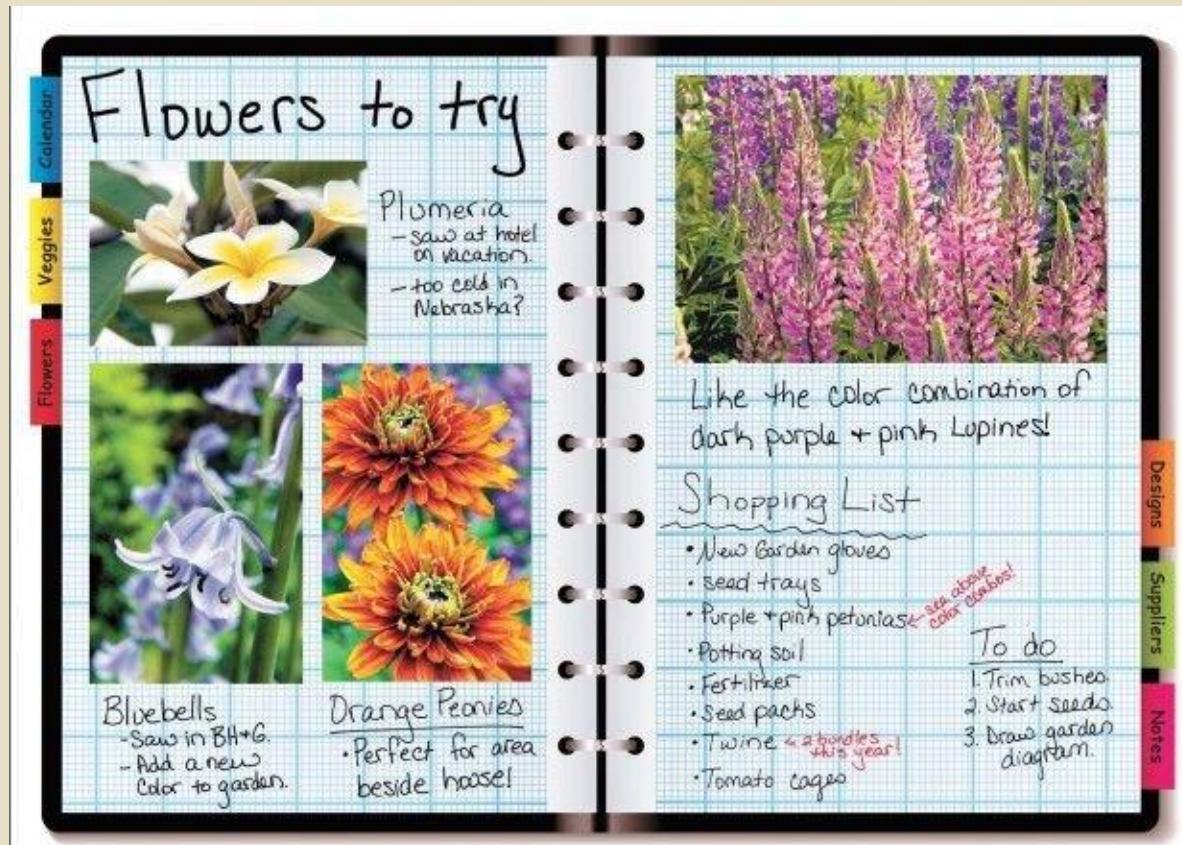 Calendar
Veggies
Flowers
Flowers to try
Plumeria
- saw at hotel
on vacation.
- too cold in
Nebraska?
Bluebells
- Saw in BH+G.
- Add a new
Color to garden.
Orange Peonies
• Perfect for area
beside house!
Like the color combination of
dark purple + pink Lupines!
Shopping List
• New Garden gloves
• seed trays
• Purple + pink petunias
← see above
color combos!
• Potting soil
• Fertilizer
• Seed packs
• Twine ← 2 bundles
this year!
• Tomato cages
To do
1. Trim bushes.
2. Start seeds.
3. Draw garden
diagram.
Designs
Suppliers
Notes